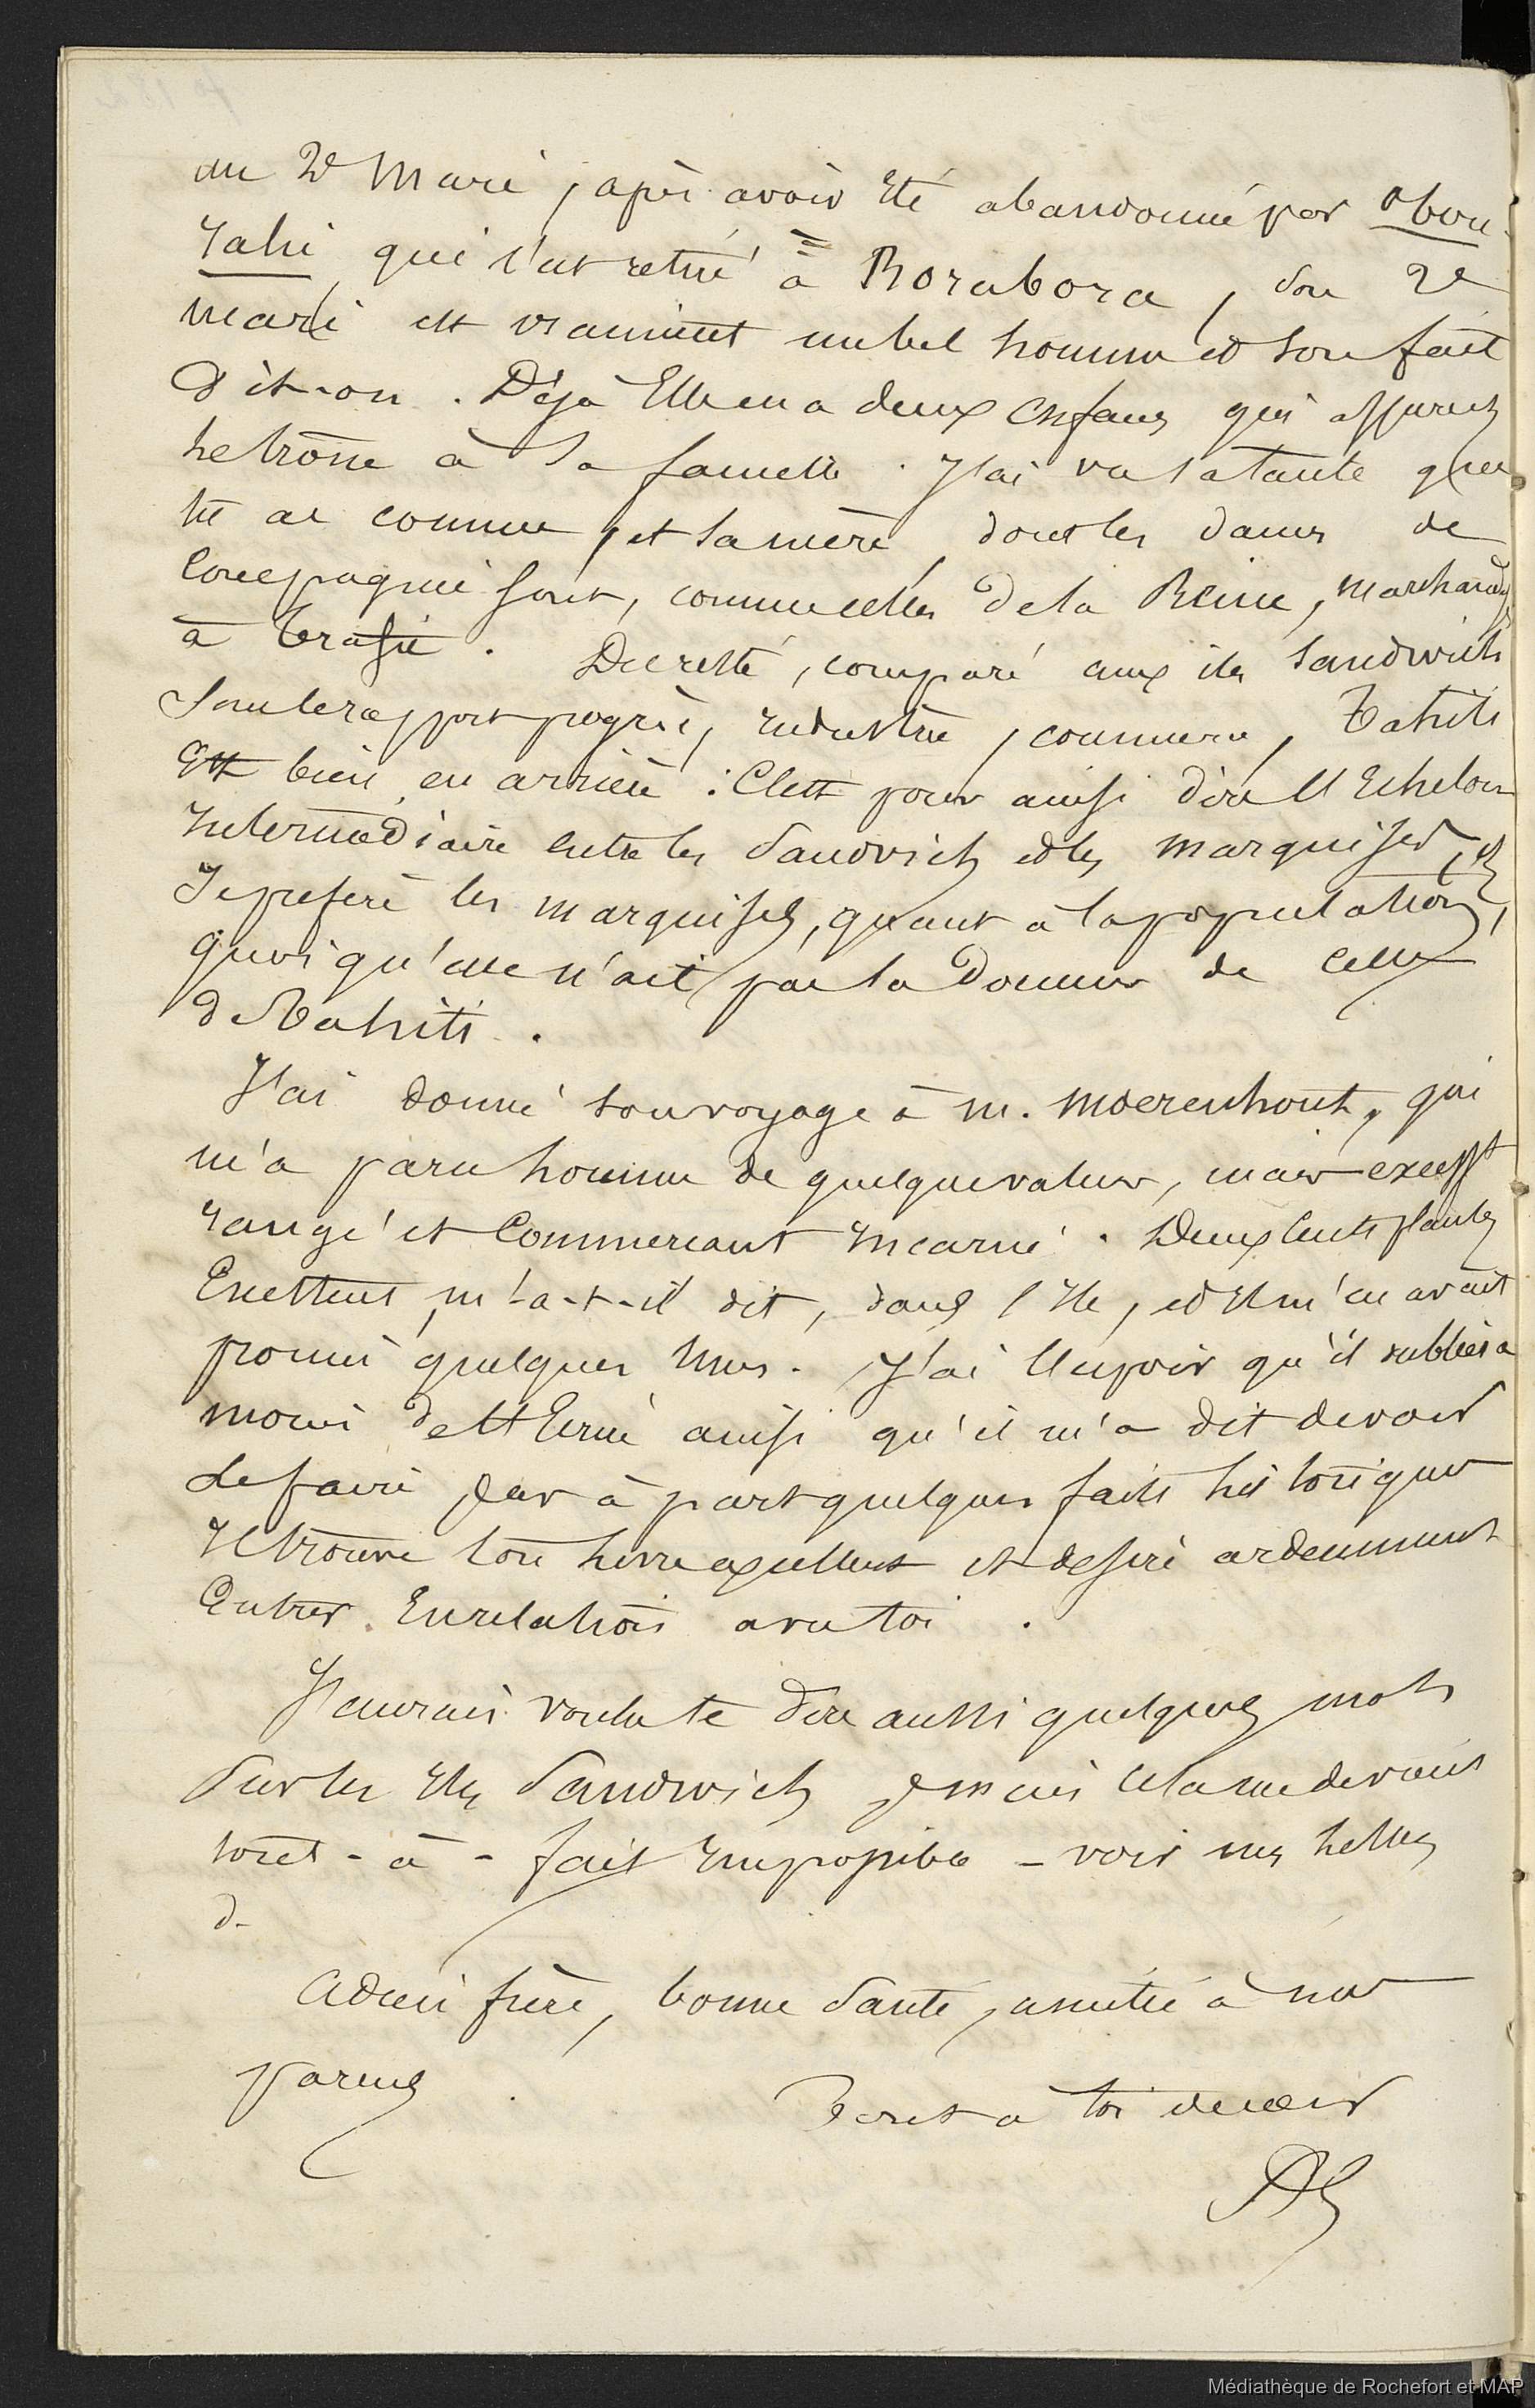 au 2e Mari, après avoir été abandonné par Abou
rahi qui s'est retiré à Borabora, son 2e
mari est vraiment un bel homme et son fait
Dit-on. Déjà Elle en a deux Enfans qui assurent
le trône à sa famille. J'ai vu sa tante que
tu as connue, et sa mère, dont les dames de
Compagnie sont, comme celles de la Reine, marchandes
à trafic. Du reste, comparé aux iles Sandwich
Sous le rapport progrès, industrie, commerce, Tahiti
Est bien en arrière : C'est pour ainsi dire l'Echelon
Intermédiaire entre les Sandwich et les Marquises, et
Je préfère les marquises, quant à la population,
quoiqu'elle n'ait pas la Douceur de celle
de Tahiti.
J'ai donné ton voyage à M. Moerenhout, qui
m'a paru homme de quelque valeur, mais excesst
rangé et Commercant Incarné. Deux cents plantes
Existent, m'a-t-il dit, dans l'Ile, et Il m'en avait
promis quelques unes. J'ai l'espoir qu'il oubliera
moins de t'Ecrire ainsi qu'il m'a dit devoir
le faire, car à part quelques faits historiques
Il trouve ton livre excellent et desire ardemment
Entrer En relations avec toi.
J'aurais voulu te dire aussi quelques mots
Sur les Iles Sandwich, mais cela me devient
tout-à-fait Impossible - voir mes lettres
d-
Adieu frère, bonne Santé, amitié à nos
parens.
Tout à toi de cœur